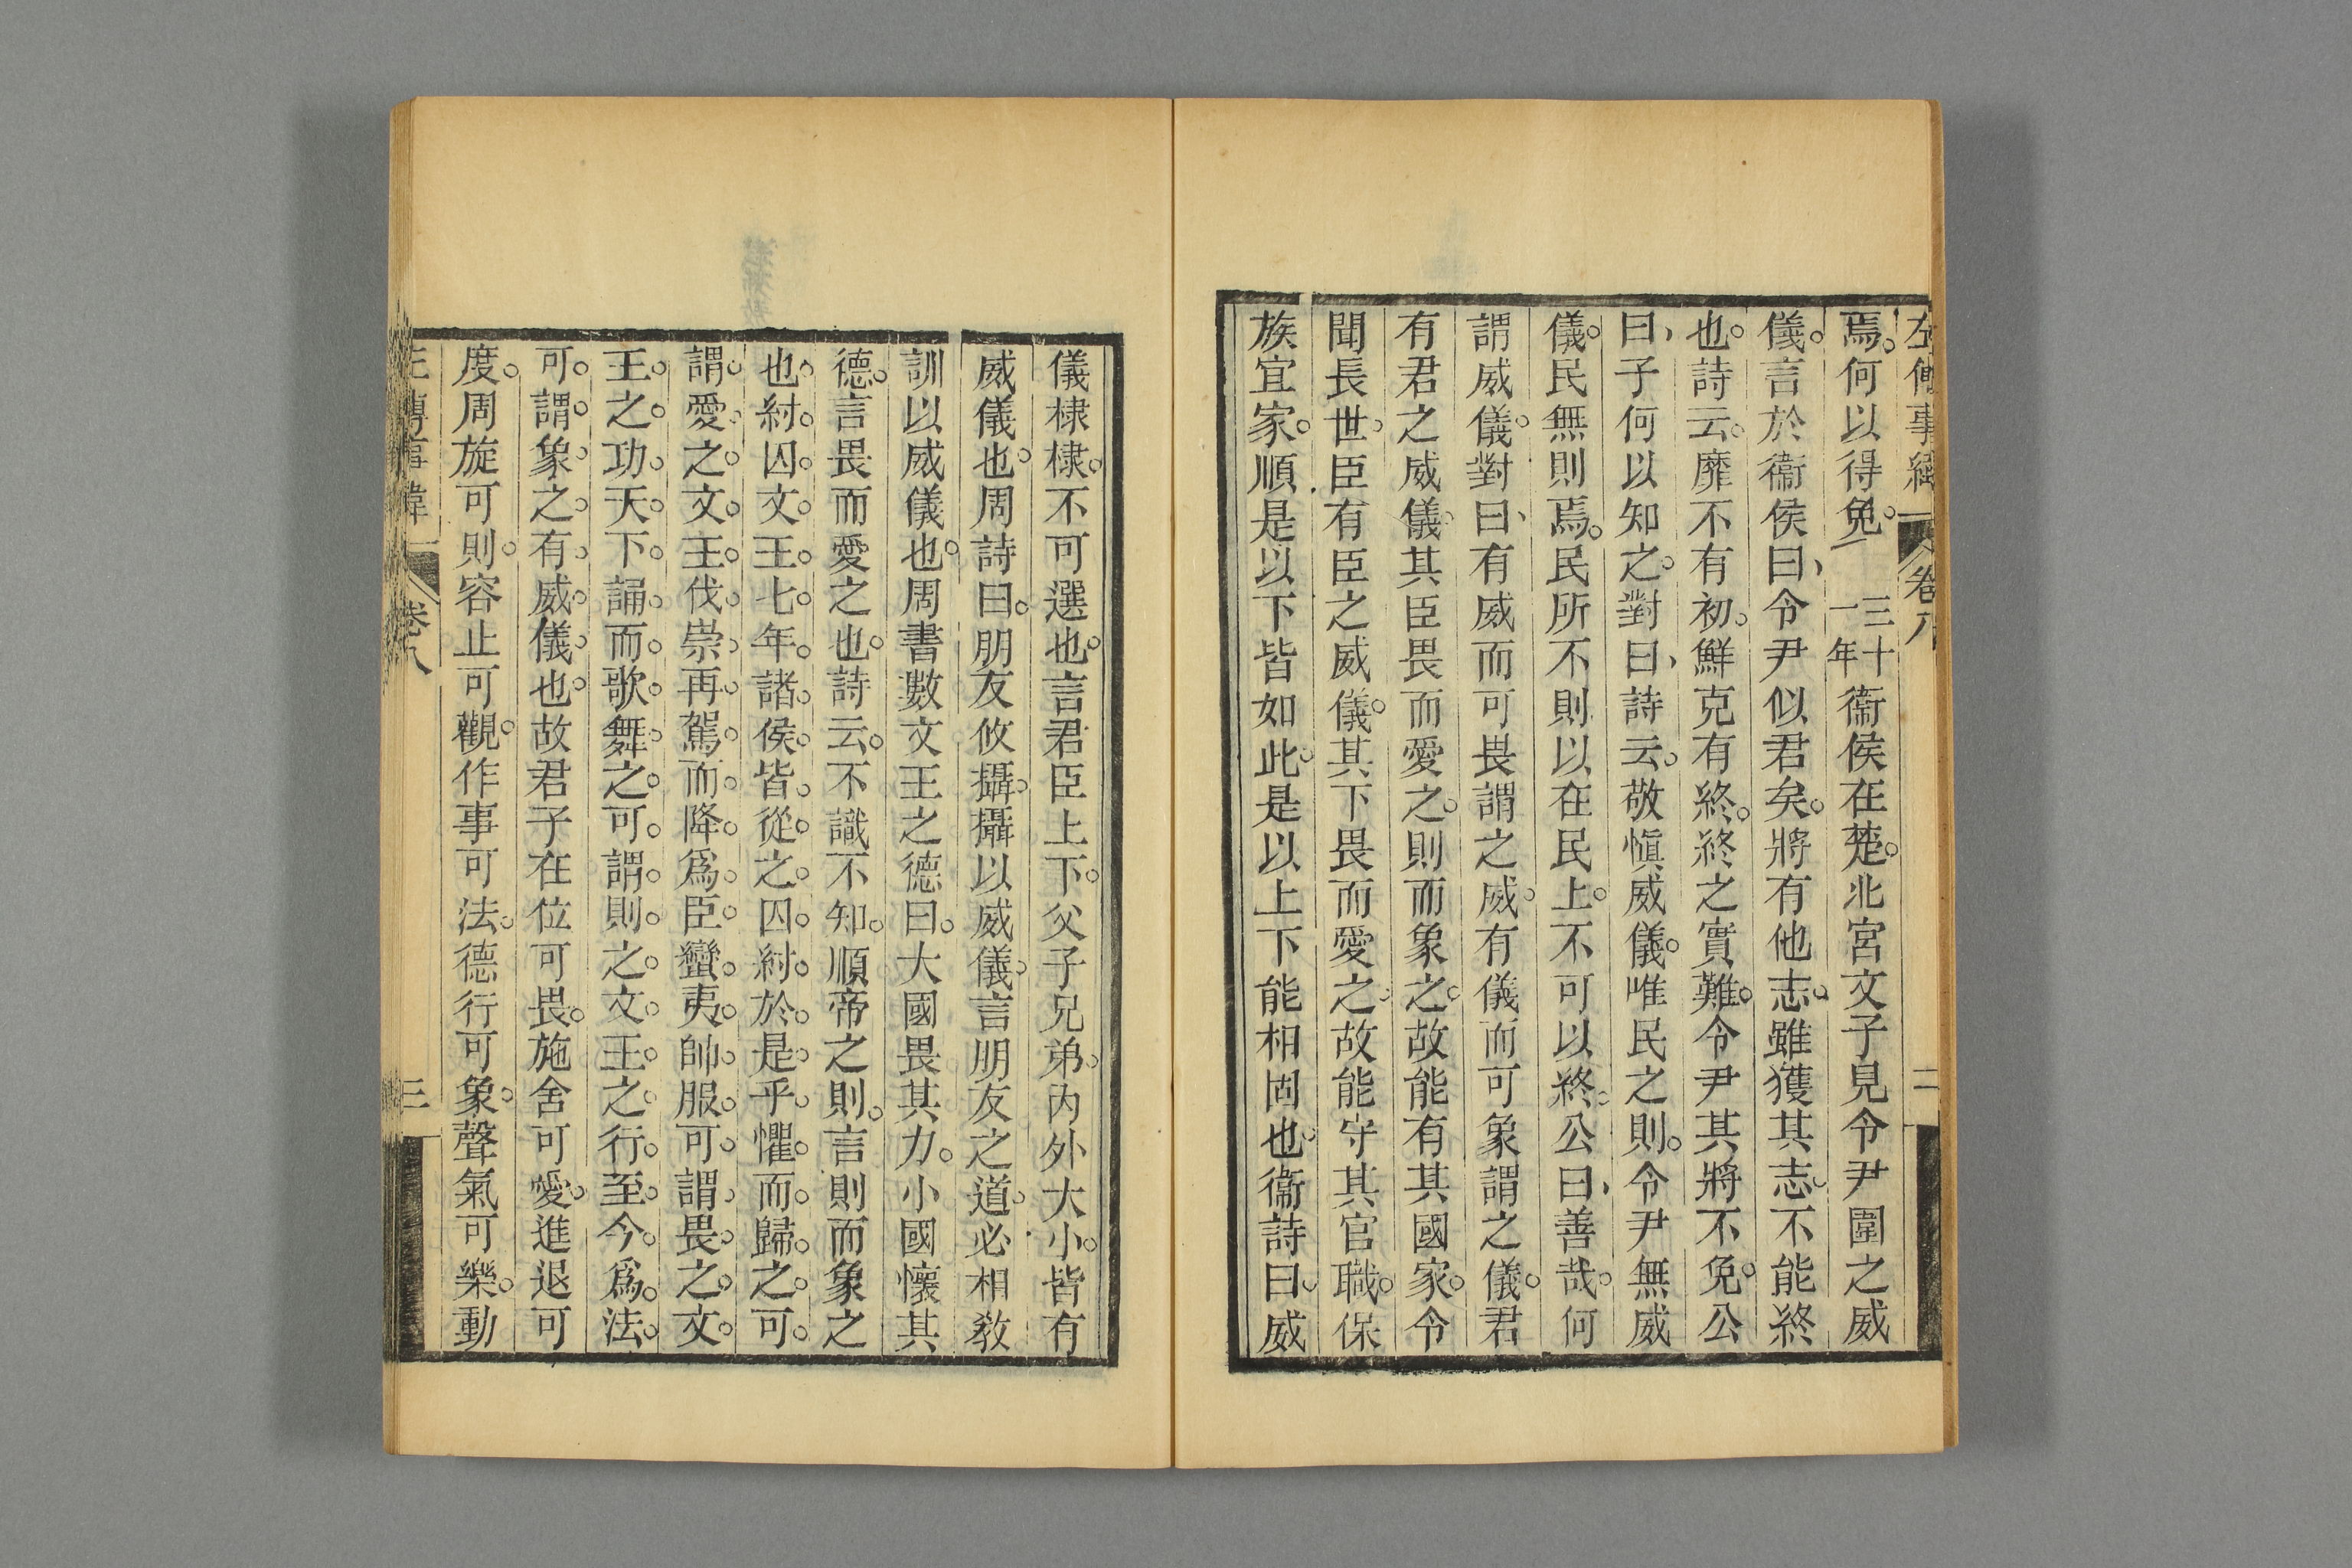 左傳事緯 卷八 二
焉何以得免 三十一年 衞侯在楚北宮文子見令尹圍之威
儀言於衞侯曰令尹似君矣將有他志雖獲其志不能終
也詩云靡不有初鮮克有終終之實難令尹其將不免公
曰子何以知之對曰詩云敬愼威儀唯民之則令尹無威
儀民無則焉民所不則以在民上不可以終公曰善哉何
謂威儀對曰有威而可畏謂之威有儀而可象謂之儀君
有君之威儀其臣畏而愛之則而象之故能有其國家令
聞長世臣有臣之威儀其下畏而愛之故能守其官職保
族宜家順是以下皆如此是以上下能相固也衞詩曰威
儀棣棣不可選也言君臣上下父子兄弟內外大小皆有
威儀也周詩曰朋友攸攝攝以威儀言朋友之道必相敎
訓以威儀也周書數文王之德曰大國畏其力小國懷其
德言畏而愛之也詩云不識不知順帝之則言則而象之
也紂囚文王七年諸侯皆從之囚紂於是乎懼而歸之可
謂愛之文王伐崇再駕而降爲臣蠻夷帥服可謂畏之文
王之功天下誦而歌舞之可謂則之文王之行至今爲法
可謂象之有威儀也故君子在位可畏施舍可愛進退可
度周旋可則容止可觀作事可法德行可象聲氣可樂動
左傳事緯 卷八 三